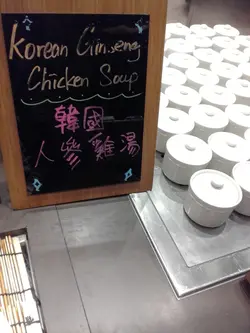 Korean Ginseng
Chicken Soup
韓國
人參雞湯